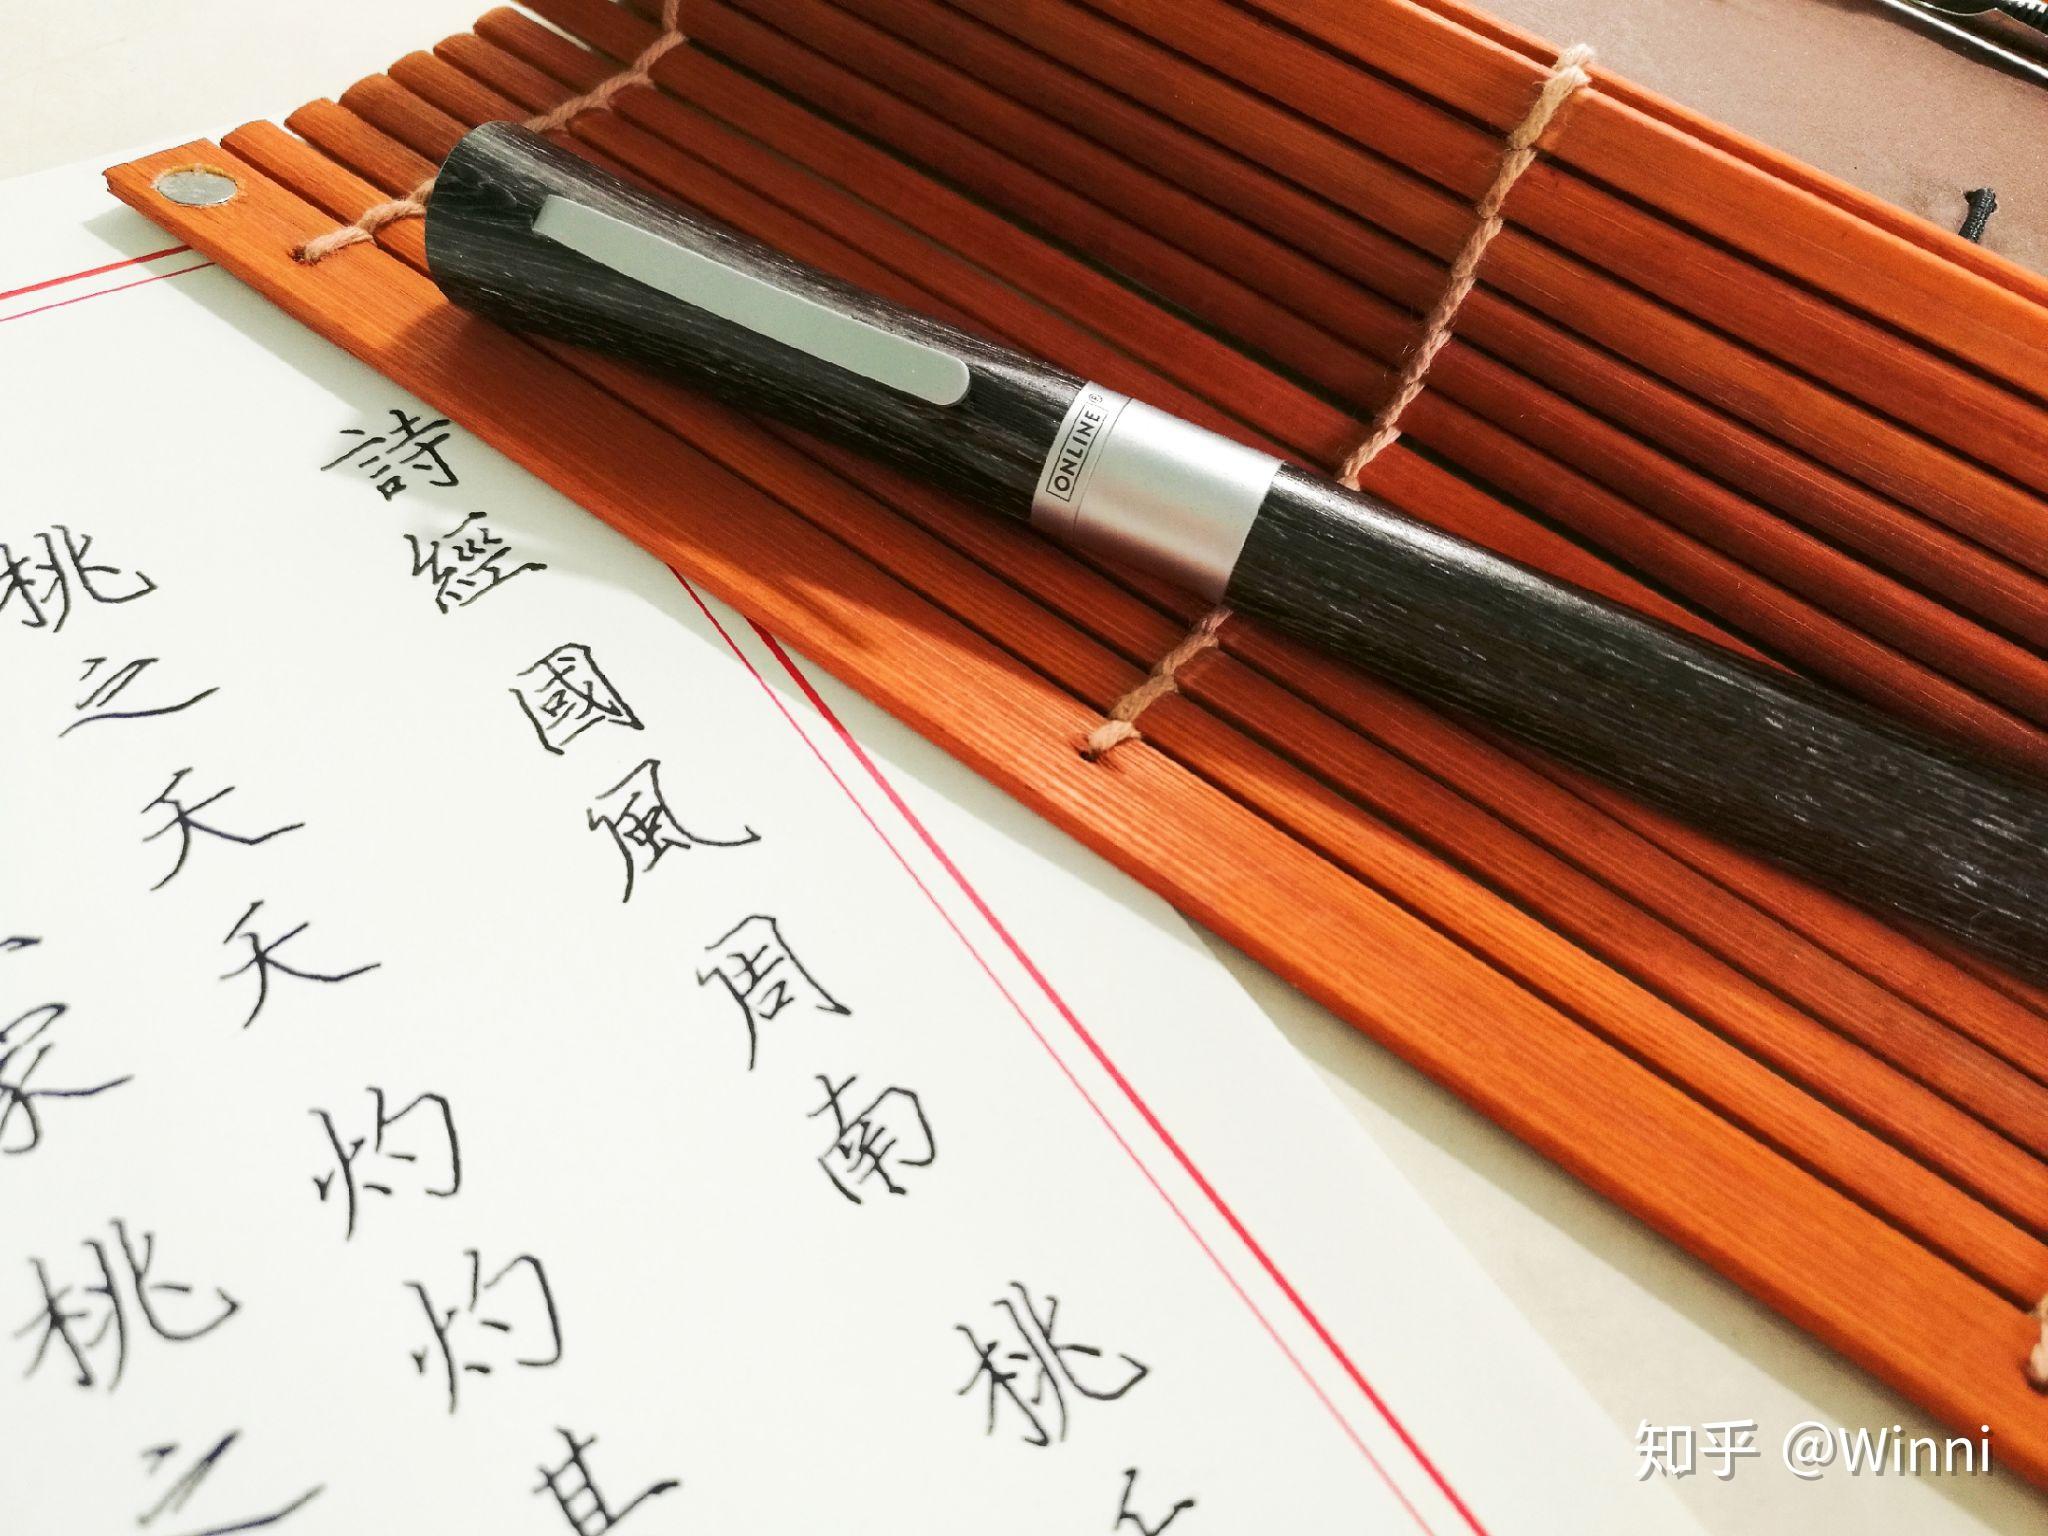 詩經國風周南 桃
桃之夭夭灼灼其
家桃之
ONLINE®
知乎 @Winni